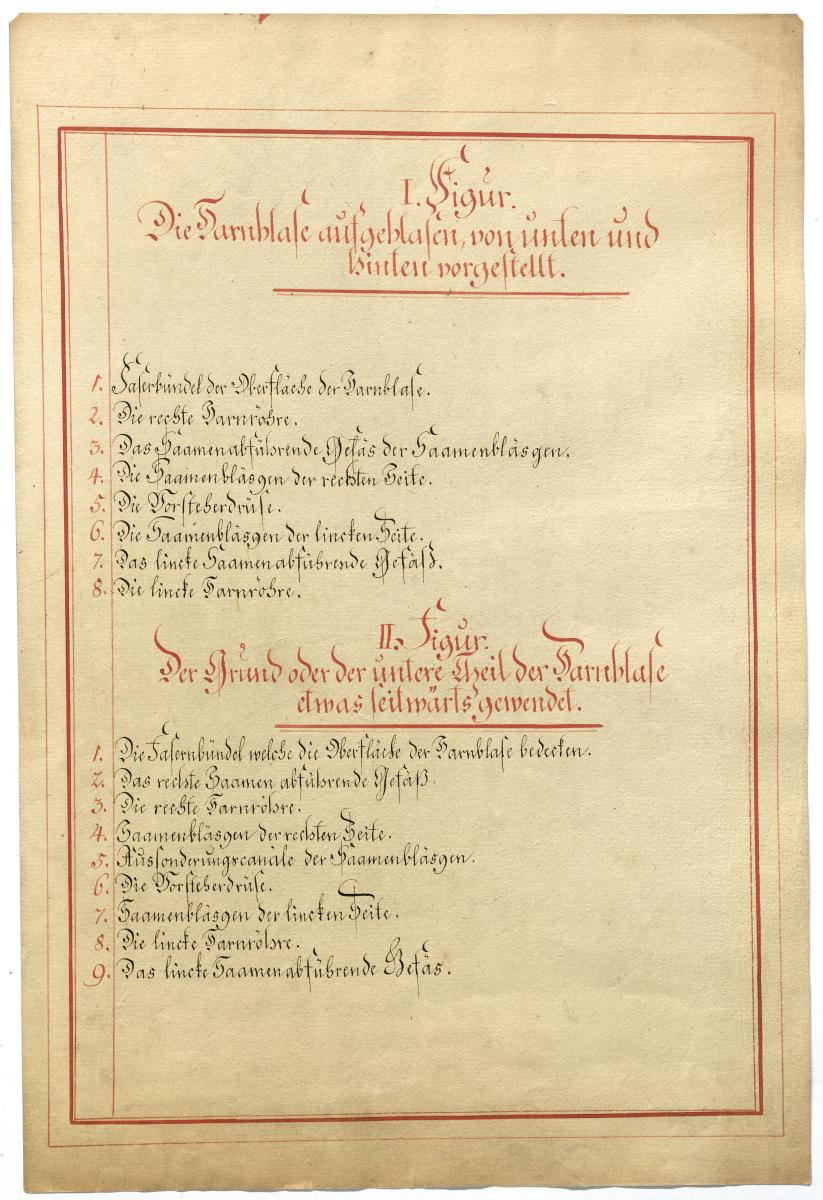 I. Figur.
Die Harnblase aufgeblasen, von unten und
hinten vorgestellt.
1. Faserbündel der Oberfläche der Harnblase.
2. Die rechte Harnröhre.
3. Das Saamenabführende Gefäs der Saamenbläsgen.
4. Die Saamenbläsgen der rechten Seite.
5. Die Vorsteherdrüse.
6. Die Saamenbläsgen der lincken Seite.
7. Das lincke Saamenabführende Gefäß.
8. Die lincke Harnröhre.
II. Figur.
Der Grund oder der untere Theil der Harnblase
etwas seitwärts gewendet.
1. Die Fasernbündel welche die Oberfläche der Harnblase bedecken.
2. Das rechte Saamen abführende Gefäß
3. Die rechte Harnröhre.
4. Saamenbläsgen der rechten Seite.
5. Aussonderungscanäle der Saamenbläsgen.
6. Die Vorsteherdrüse.
7. Saamenbläsgen der lincken Seite.
8. Die lincke Harnröhre.
9. Das lincke Saamenabführende Gefäs.